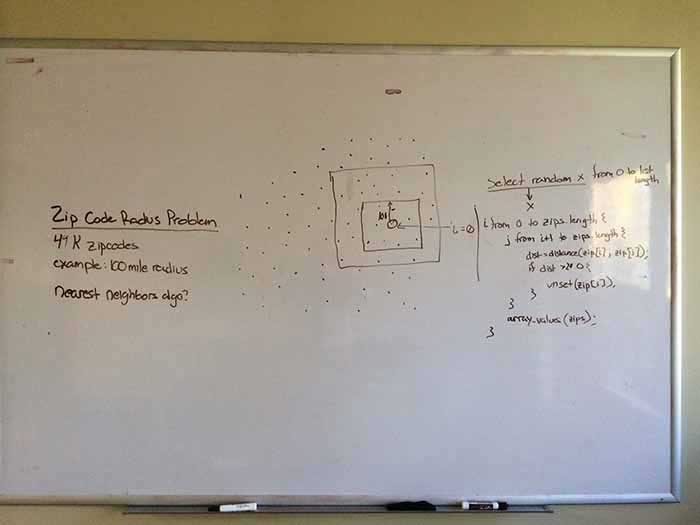 Zip Code Radius Problem
41 K zipcodes
example: 100 mile radius
nearest neighbors algo?
100
i = 0
Select random x from 0 to list length
x
i from 0 to zips.length {
j from i+1 to zips.length {
dist = distance(zip[i], zip[j]);
if dist > 0 {
unset(zip[i]);
}
}
array_values(zips);
}